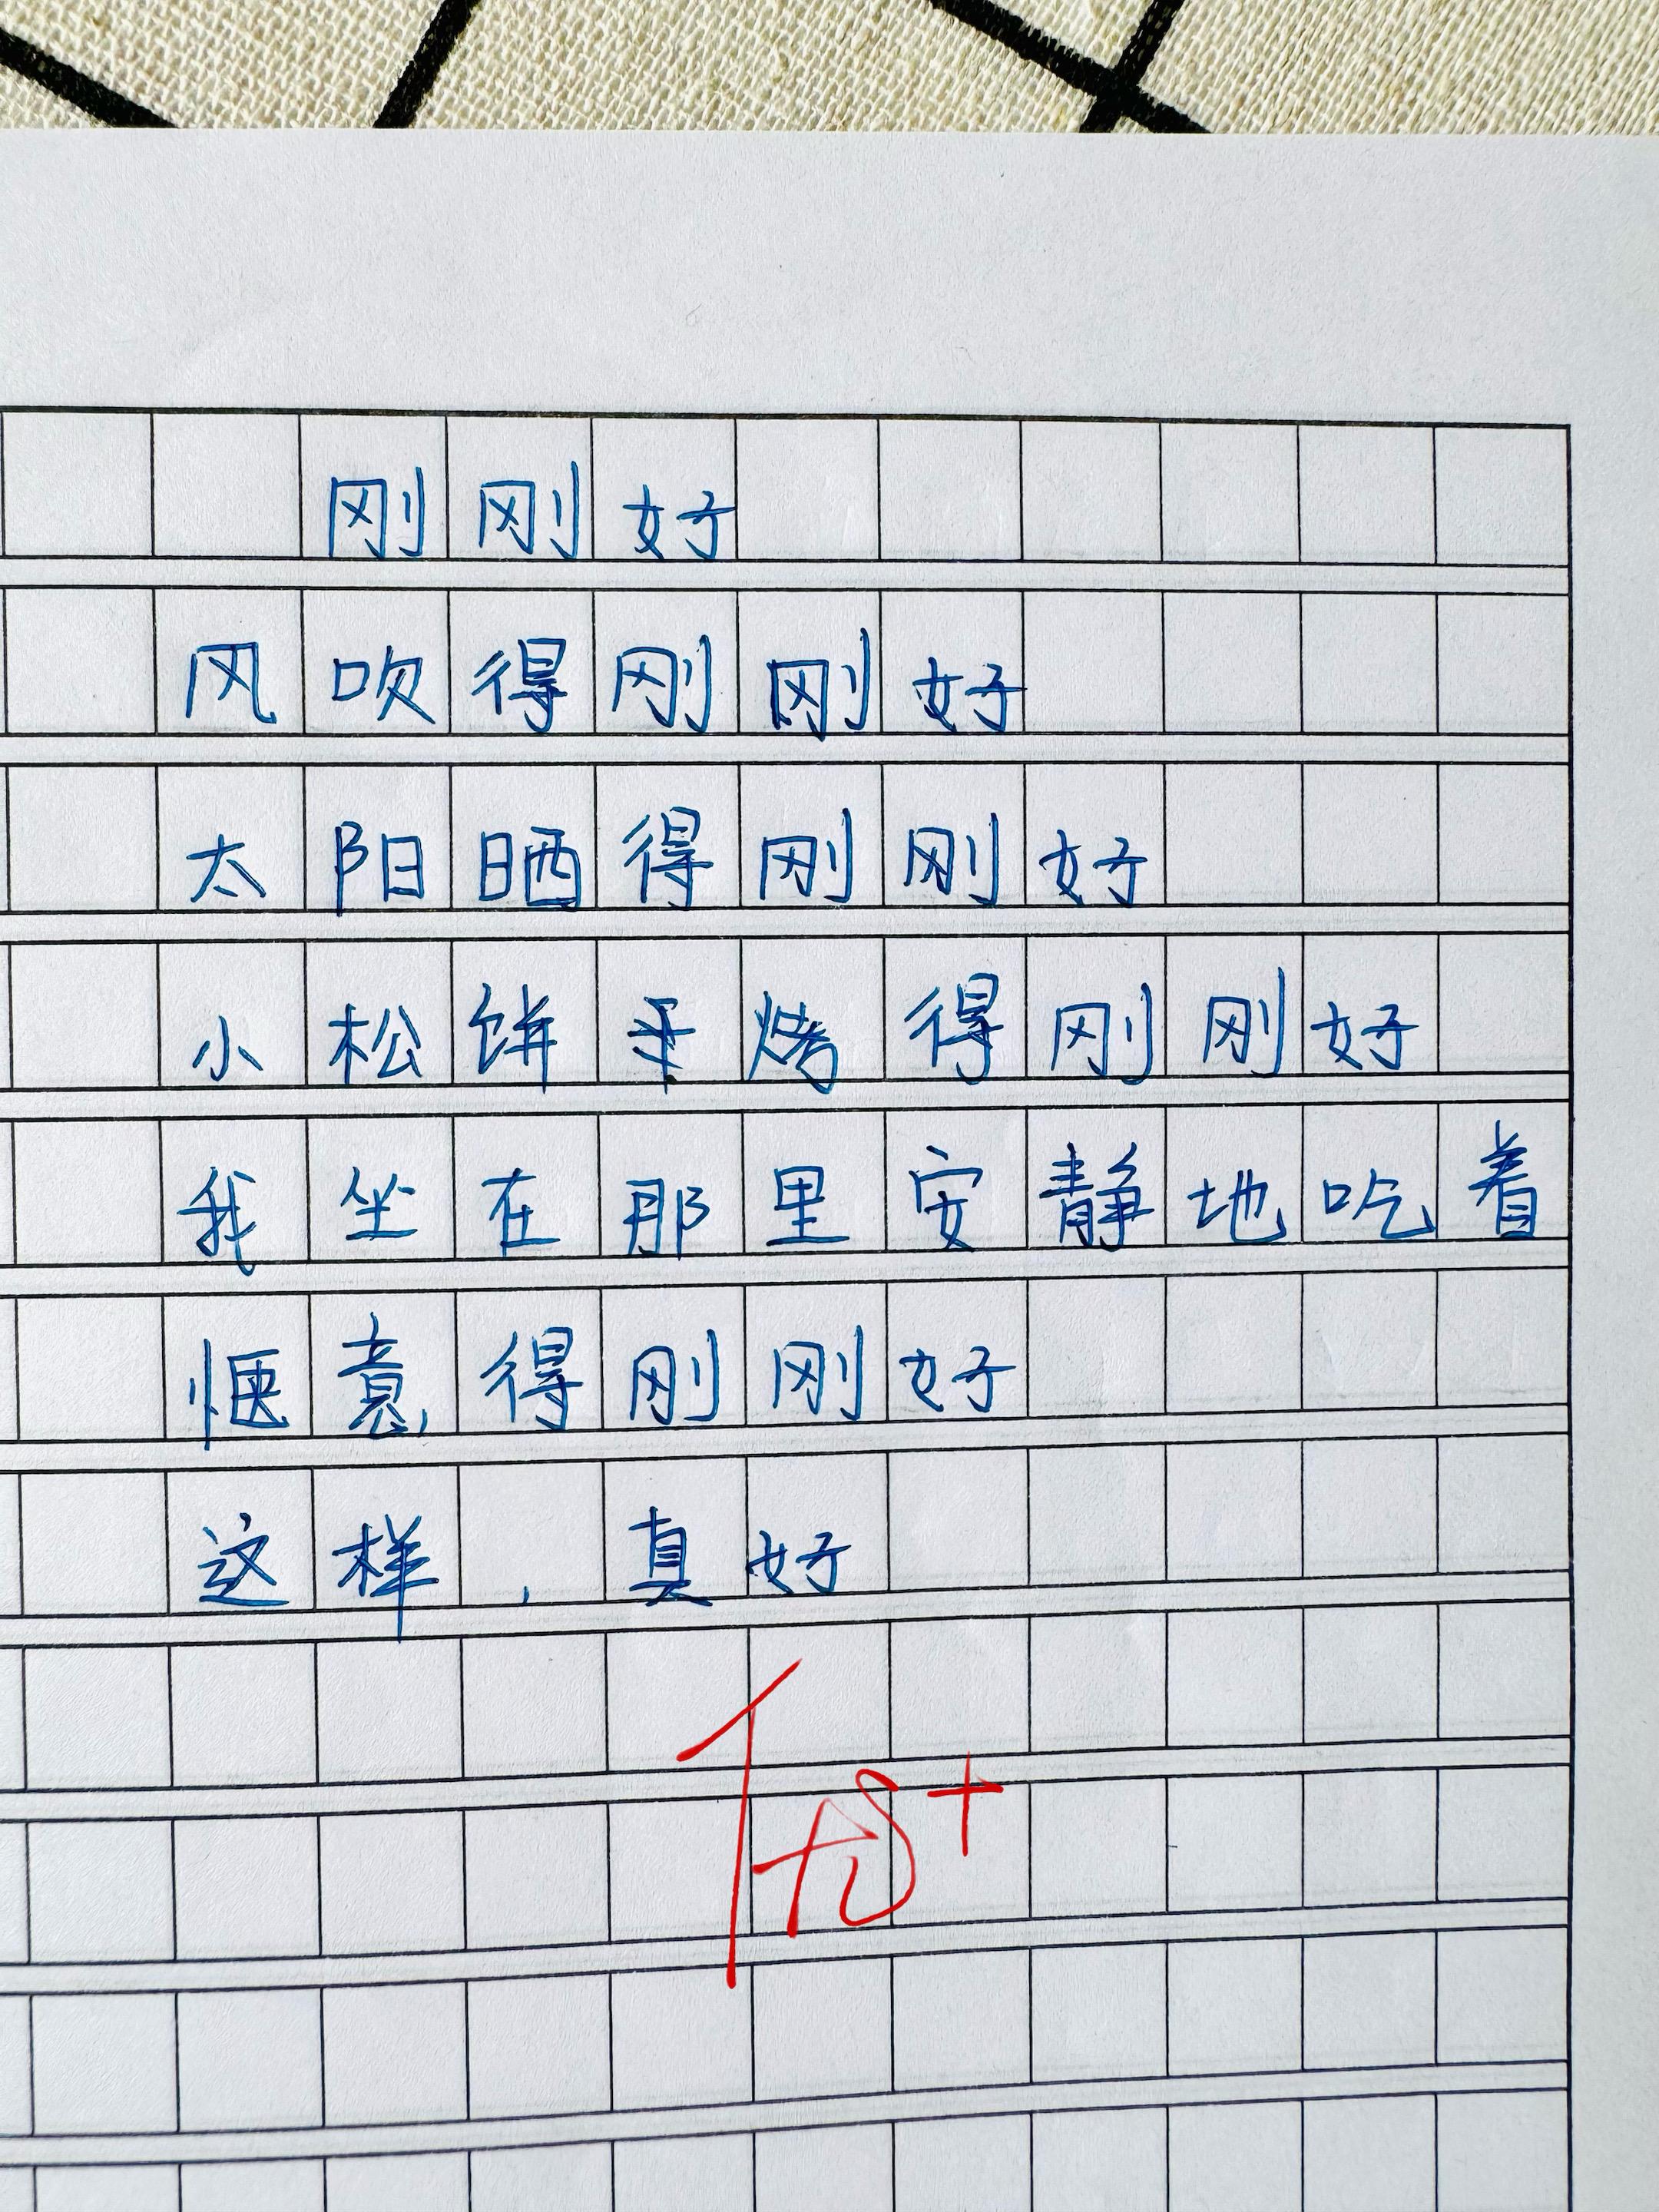 刚刚好
风吹得刚刚好
太阳晒得刚刚好
小松饼干烤得刚刚好
我坐在那里安静地吃着
惬意得刚刚好
这样,真好
优+